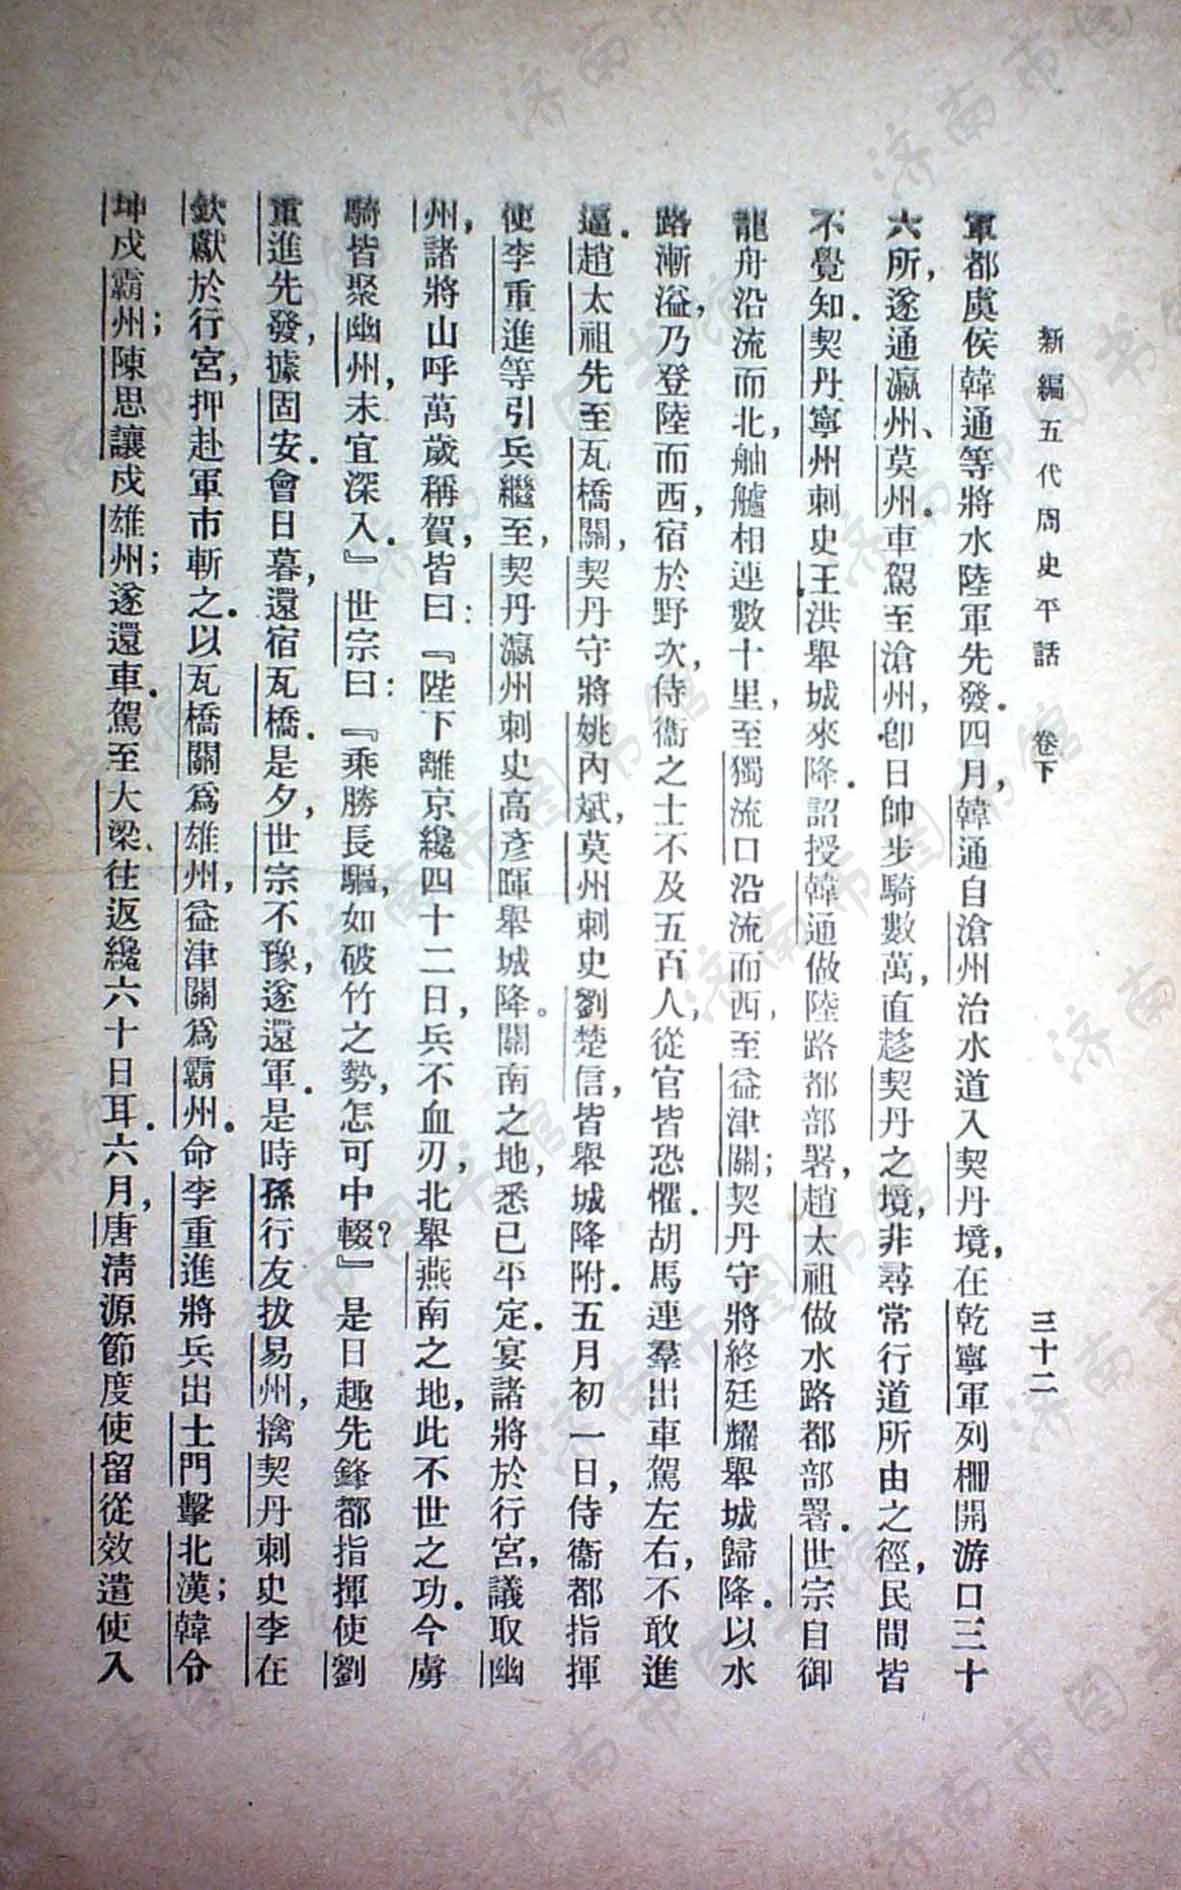 新編五代周史平話 卷下 三十二
軍都虞侯韓通等將水陸軍先發．四月，韓通自滄州治水道入契丹境，在乾寧軍列柵開游口三十
六所，遂通瀛州、莫州．車駕至滄州，卽日帥步騎數萬，直趍契丹之境，非尋常行道所由之徑，民間皆
不覺知．契丹寧州刺史王洪舉城來降．詔授韓通做陸路都部署，趙太祖做水路都部署．世宗自御
龍舟沿流而北，舳艫相連數十里，至獨流口沿流而西，至益津關；契丹守將終廷耀舉城歸降．以水
路漸溢，乃登陸而西，宿於野次，侍衞之士不及五百人，從官皆恐懼．胡馬連羣出車駕左右，不敢進
逼．趙太祖先至瓦橋關，契丹守將姚內斌，莫州刺史劉楚信，皆舉城降附．五月初一日，侍衞都指揮
使李重進等引兵繼至，契丹瀛州刺史高彥暉舉城降。關南之地，悉已平定．宴諸將於行宮，議取幽
州，諸將山呼萬歲稱賀，皆曰：『陛下離京纔四十二日，兵不血刃，北舉燕南之地，此不世之功．今虜
騎皆聚幽州，未宜深入．』世宗曰：『乘勝長驅，如破竹之勢，怎可中輟？』是日趣先鋒都指揮使劉
重進先發，據固安．會日暮，還宿瓦橋．是夕，世宗不豫，遂還軍．是時孫行友拔易州，擒契丹刺史李在
欽獻於行宮，押赴軍市斬之．以瓦橋關爲雄州，益津關爲霸州．命李重進將兵出土門擊北漢；韓令
坤戍霸州；陳思讓戍雄州；遂還車．駕至大梁、往返纔六十日耳．六月，唐淸源節度使留從效遣使入